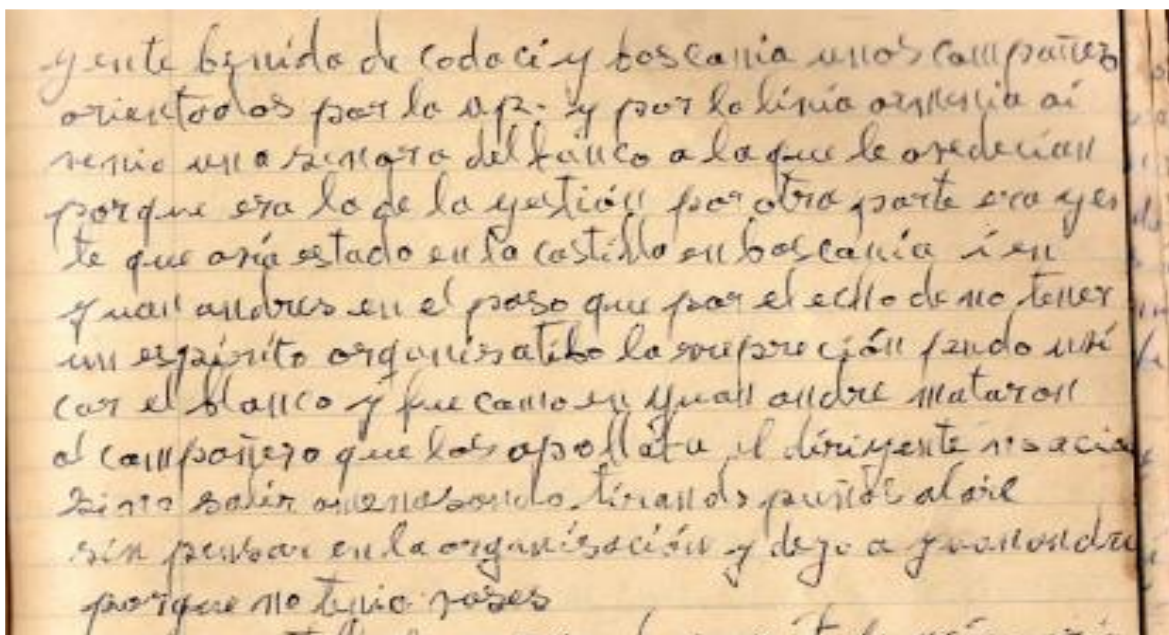 yente benida de codaci y toscania unos compañero
orientodos por la ap. y por la linia armenia ai
venia una senora del banco a la que le ovedecian
porque era la de la gestión por otra parte era gen
te que avia estado en la castilla en boscania i en
yuan andres en el paso que por el echo de no tener
un espirito organisatibo la represión pudo uvi
car el blanco y fue como en yuan andre mataron
al compañero que los apollaba, el dirigente no acia
sino salir amenasando, tirando puños al aire
sin pensar en la organisación y dejo a yuanandre
porque no tenia vases